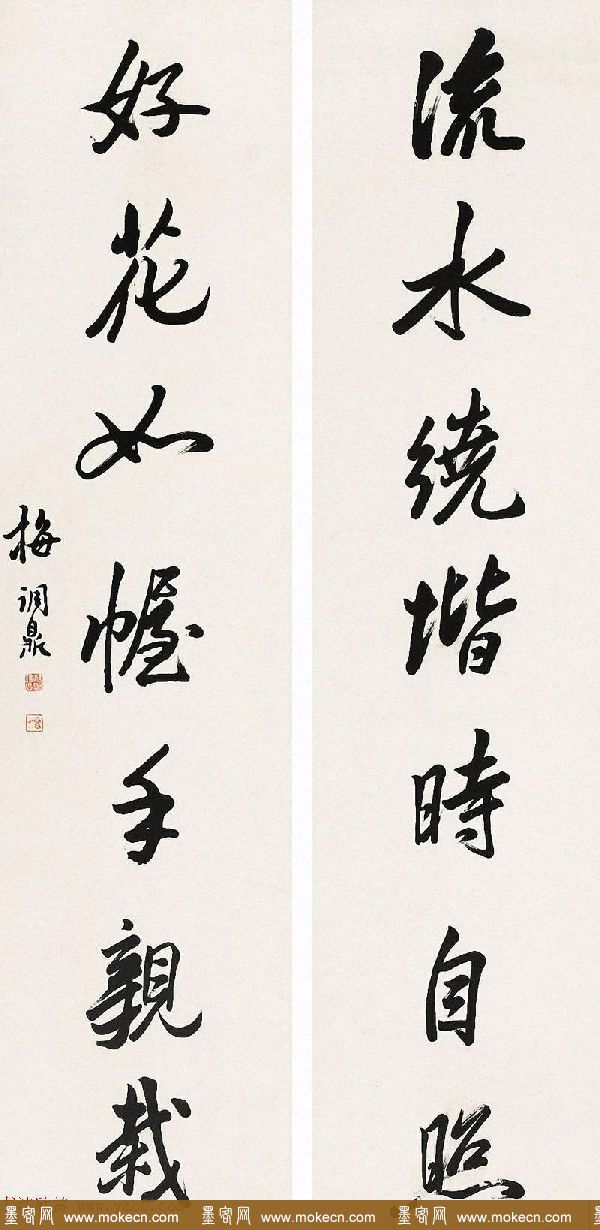 流水繞堦時自照
好花如幄手親栽
梅調鼎
墨客网 www.mokecn.com 墨客网 www.mokecn.com 墨客网 www.mokecn.com